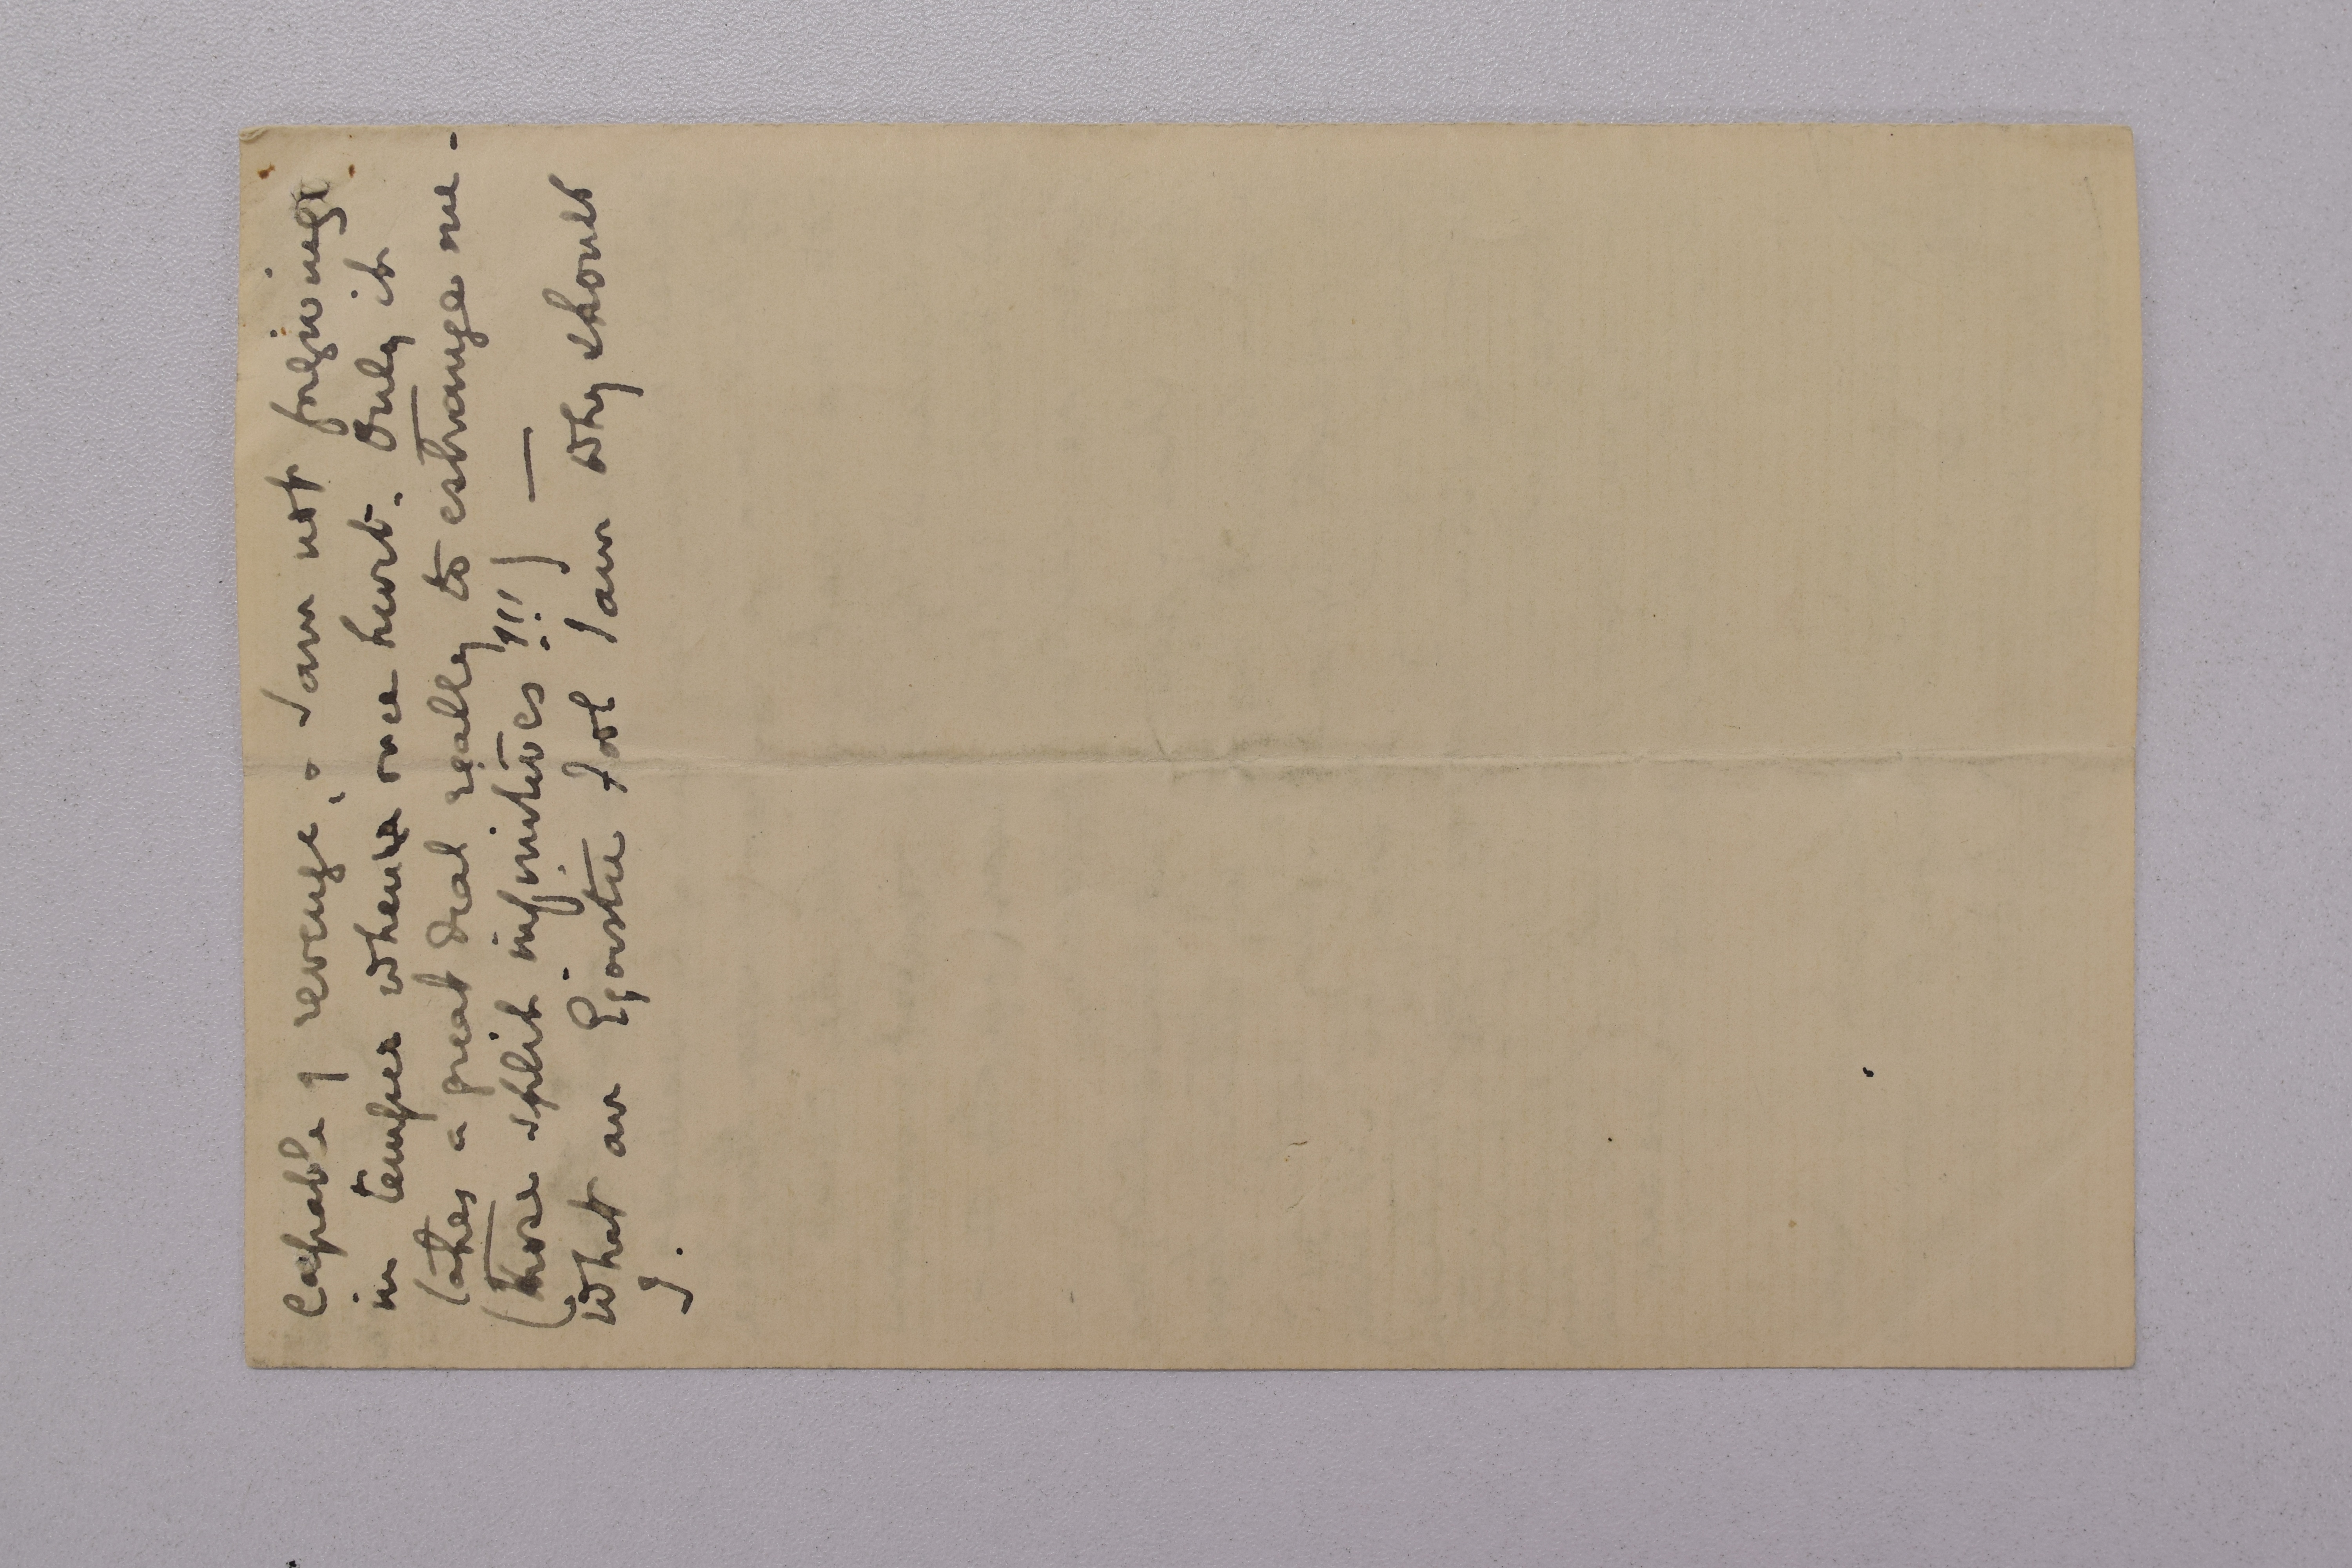 Capable of revenge, & I am not forgiving
in temper when once hurt. Only it
takes a great deal really to estrange me -
(those split infinitives!!!) —
What an Egoistic fool I am why should
I.